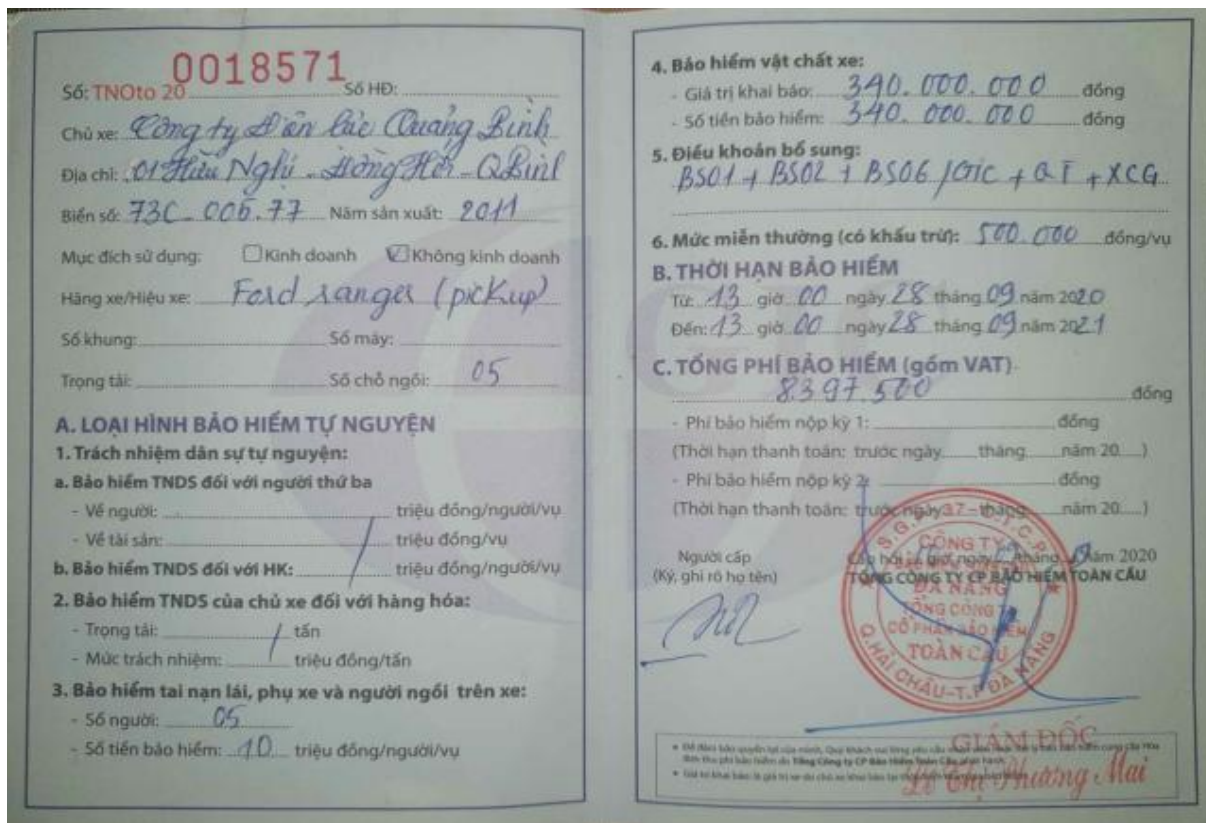 0018571
Số: TNOto 20 Số HĐ:
Chủ xe: Công ty Điện lực Quảng Bình
Địa chỉ: 01 Hữu Nghị - Đồng Hới - QBình
Biển số: 73C - 006.77 Năm sản xuất: 2011
Mục đích sử dụng: Kinh doanh Không kinh doanh
Hãng xe/Hiệu xe: Ford ranger (pickup)
Số khung: Số máy:
Trọng tải: Số chỗ ngồi: 05
A. LOẠI HÌNH BẢO HIỂM TỰ NGUYỆN
1. Trách nhiệm dân sự tự nguyện:
a. Bảo hiểm TNDS đối với người thứ ba
- Về người: triệu đồng/người/vụ
- Về tài sản: triệu đồng/vụ
b. Bảo hiểm TNDS đối với HK: triệu đồng/người/vụ
2. Bảo hiểm TNDS của chủ xe đối với hàng hóa:
- Trọng tải: tấn
- Mức trách nhiệm: triệu đồng/tấn
3. Bảo hiểm tai nạn lái, phụ xe và người ngồi trên xe:
- Số người: 05
- Số tiền bảo hiểm: 10 triệu đồng/người/vụ
4. Bảo hiểm vật chất xe:
- Giá trị khai báo: 340.000.000 đồng
- Số tiền bảo hiểm: 340.000.000 đồng
5. Điều khoản bổ sung:
BS01 + BS02 + BS06/GIC + QT + XCG
6. Mức miễn thường (có khấu trừ): 500.000 đồng/vụ
B. THỜI HẠN BẢO HIỂM
Từ: 13 giờ 00 ngày 28 tháng 09 năm 2020
Đến: 13 giờ 00 ngày 28 tháng 09 năm 2021
C. TỔNG PHÍ BẢO HIỂM (gồm VAT)
8.397.500 đồng
- Phí bảo hiểm nộp kỳ 1: đồng
(Thời hạn thanh toán: trước ngày tháng năm 20 )
- Phí bảo hiểm nộp kỳ 2: đồng
(Thời hạn thanh toán: trước ngày tháng năm 20 )
Người cấp
(Ký, ghi rõ họ tên)
Cấp hồi giờ, ngày tháng năm 2020
TỔNG CÔNG TY CP BẢO HIỂM TOÀN CẦU
CÔNG TY
ĐÀ NẴNG
TỔNG CÔNG TY
CỔ PHẦN BẢO HIỂM
TOÀN CẦU
Q.HẢI CHÂU-T.P ĐÀ NẴNG
GIÁM ĐỐC
Lê Thị Phương Mai